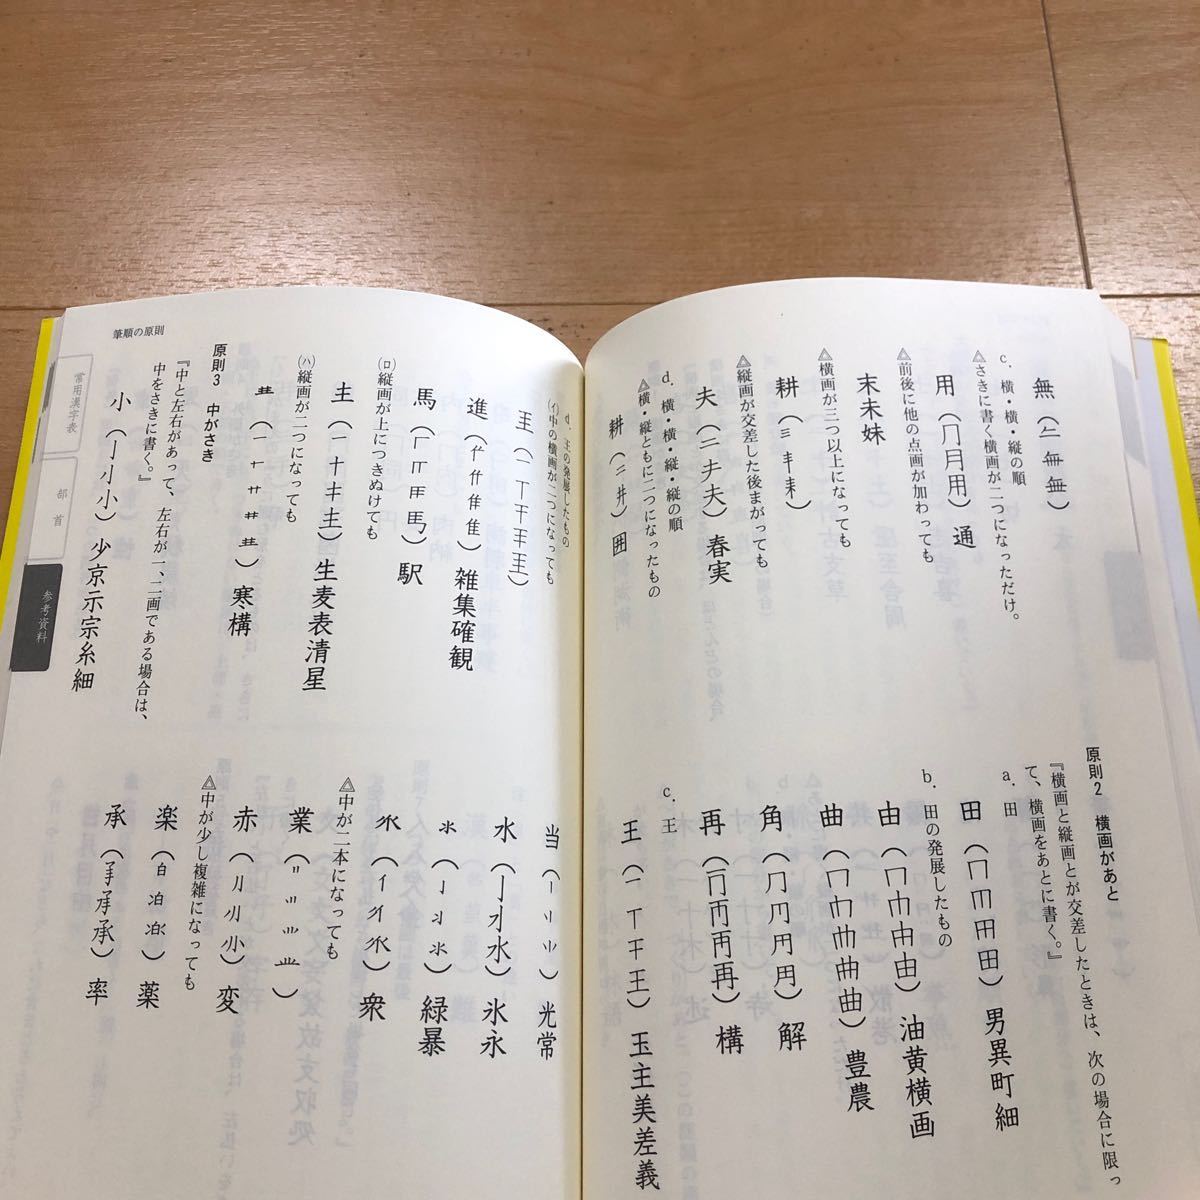 無（𠂉 無 無）
c．横・横・縦の順
△さきに書く横画が二つになっただけ。
用（冂月用）通
△前後に他の点画が加わっても
末未妹
△横画が三つ以上になっても
耕（三 耒）
△縦画が交差した後まがっても
夫（二夫夫）春実
d．横・横・縦・縦の順
△横・縦ともに二つになったもの
耕（二井）囲
原則2 横画があと
『横画と縦画とが交差したときは、次の場合に限っ
て、横画をあとに書く。』
a．田
田（冂田田）男異町細
b．田の発展したもの
由（冂由由）油黄横画
曲（冂曲曲）豊農
角（⺆円）解
再（再再）構
c．王
王（一丅干王）玉主美差義
筆順の原則
常用漢字表
部首
参考資料
d．王の発展したもの
(イ)中の横画が二つになっても
（一丅干）
進（隹）雑集確観
(ロ)縦画が上につきぬけても
馬（厂馬）駅
（一十キ）生麦表清星
(ハ)縦画が二つになっても
（一十卄）寒構
原則3 中がさき
『中と左右があって、左右が一、二画である場合は、
中をさきに書く。』
小（亅小小）少京示宗糸細
当（丨⺌）光常
水（亅水水）氷永
氺（亅氺）緑暴
（イ）衆
△中が二本になっても
業（〢）
赤（小）変
△中が少し複雑になっても
楽（白）薬
承（承承）率